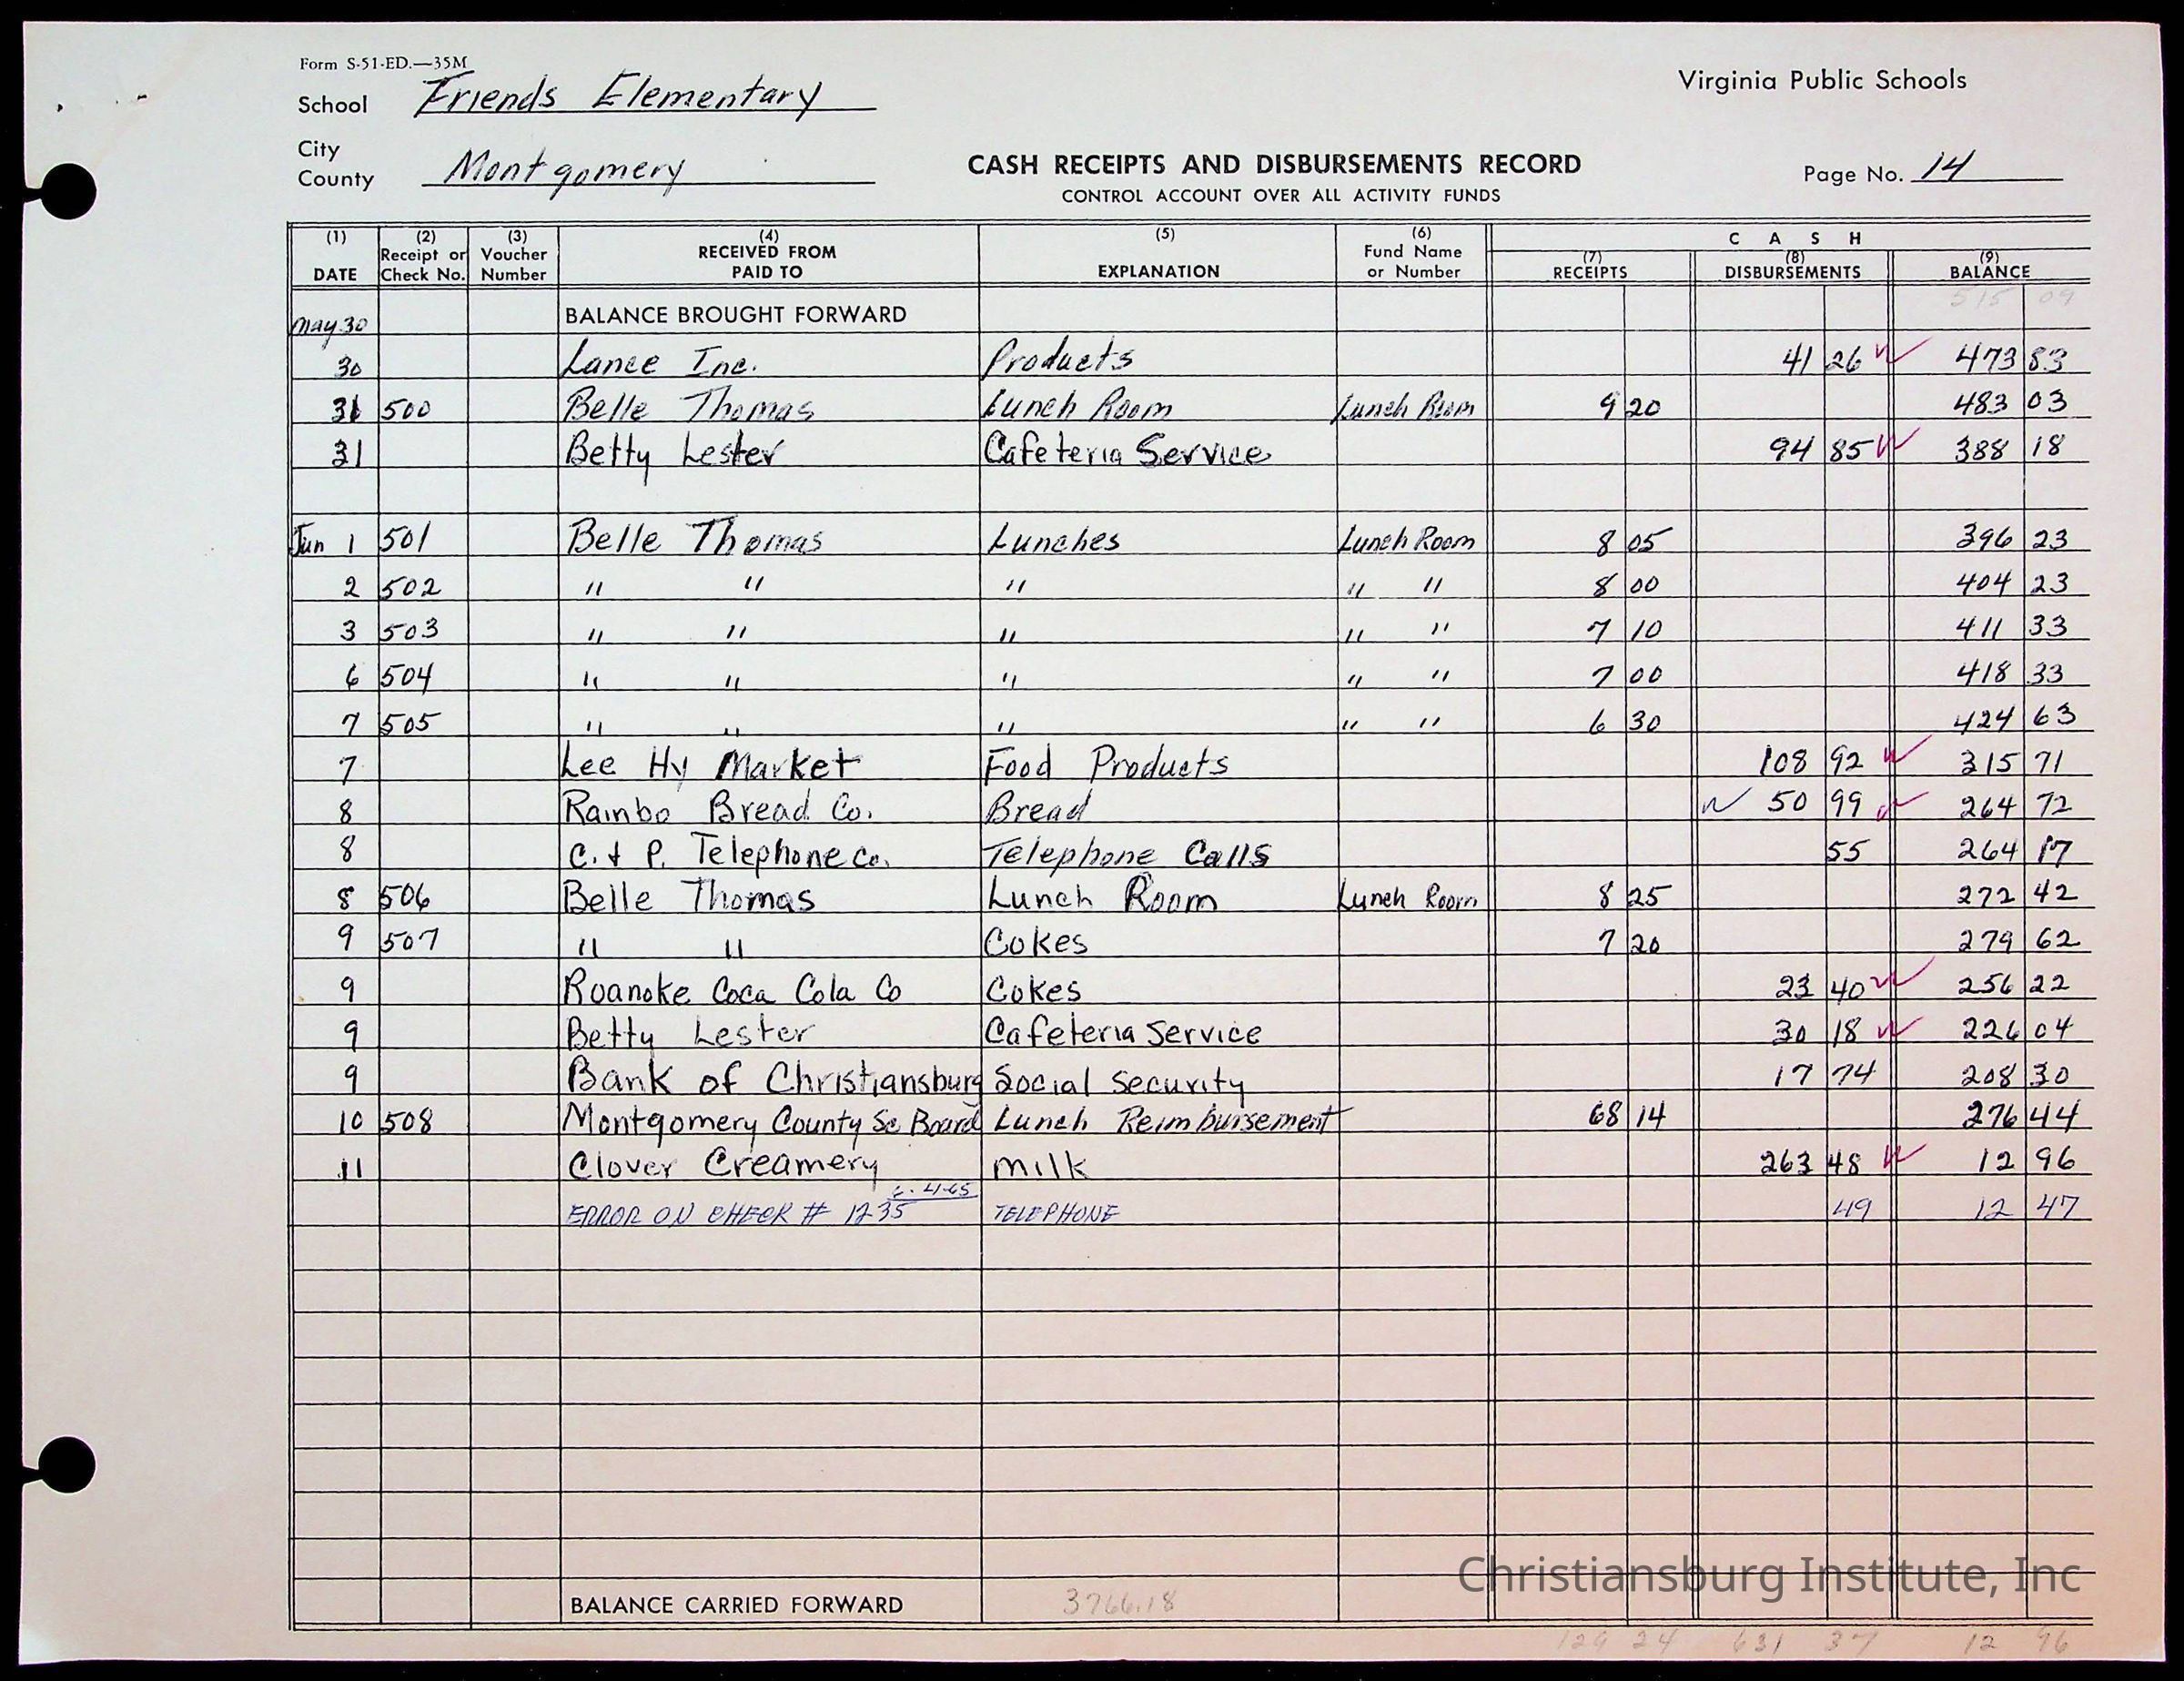 Form S-51-ED.—35M
School Friends Elementary
Virginia Public Schools
City
County Montgomery
CASH RECEIPTS AND DISBURSEMENTS RECORD
CONTROL ACCOUNT OVER ALL ACTIVITY FUNDS
Page No. 14
(1) DATE (2) Receipt or Check No. (3) Voucher Number (4) RECEIVED FROM PAID TO (5) EXPLANATION (6) Fund Name or Number CASH (7) RECEIPTS (8) DISBURSEMENTS (9) BALANCE
May 30 BALANCE BROUGHT FORWARD 515 09
30 Lance Inc. Products 41 26 473 83
31 500 Belle Thomas Lunch Room Lunch Room 9 20 483 03
31 Betty Lester Cafeteria Service 94 85 388 18
Jun 1 501 Belle Thomas Lunches Lunch Room 8 05 396 23
2 502 " " " " " 8 00 404 23
3 503 " " " " " 7 10 411 33
6 504 " " " " " 7 00 418 33
7 505 " " " " " 6 30 424 63
7 Lee Hy Market Food Products 108 92 315 71
8 Rainbo Bread Co. Bread 50 99 264 72
8 C. & P. Telephone Co. Telephone Calls 55 264 17
8 506 Belle Thomas Lunch Room Lunch Room 8 25 272 42
9 507 " " Cokes 7 20 279 62
9 Roanoke Coca Cola Co Cokes 23 40 256 22
9 Betty Lester Cafeteria Service 30 18 226 04
9 Bank of Christiansburg Social Security 17 74 208 30
10 508 Montgomery County Sc Board Lunch Reimbursement 68 14 276 44
11 Clover Creamery Milk 263 48 12 96
6-4-65
ERROR ON CHECK # 1235 TELEPHONE 49 12 47
Christiansburg Institute, Inc
BALANCE CARRIED FORWARD 3766.18
129 24 631 37 12 96